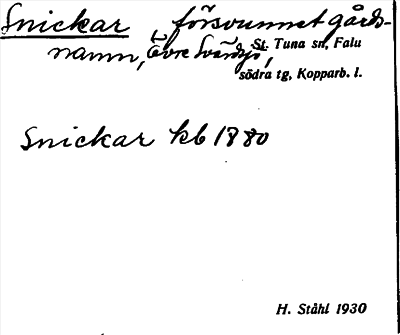 Snickar, försvunnet gårds-
namn, Övre Svärdsjö,
St. Tuna sn, Falu
södra tg, Kopparb. l.
Snickar kb 1880
H. Ståhl 1930